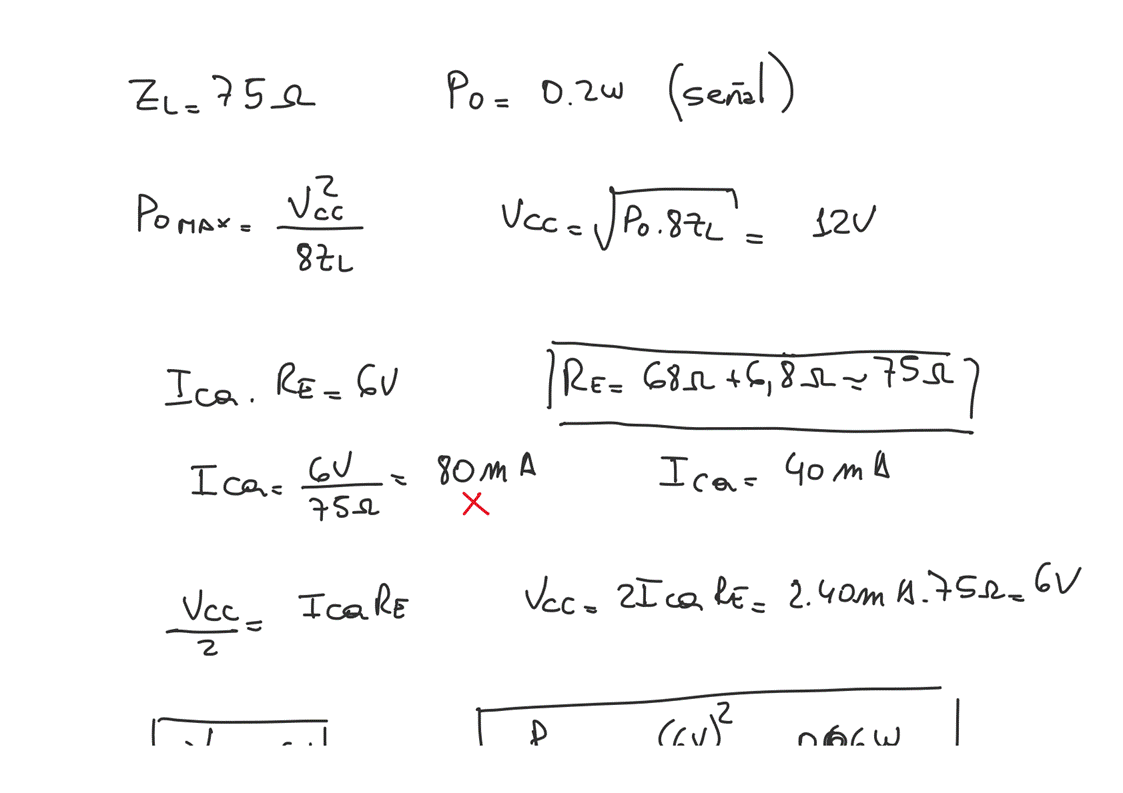 ZL = 75Ω   Po = 0.2W (señal)
Po MAX = Vcc² / 8ZL   Vcc = √(Po . 8ZL) = 12V
ICQ . RE = 6V   RE = 68Ω + 6,8Ω ≃ 75Ω
ICQ = 6V / 75Ω = 80mA   ICQ = 40mA
X
Vcc / 2 = ICQ RE   Vcc = 2 ICQ RE = 2.40mA.75Ω = 6V
P (6V)²